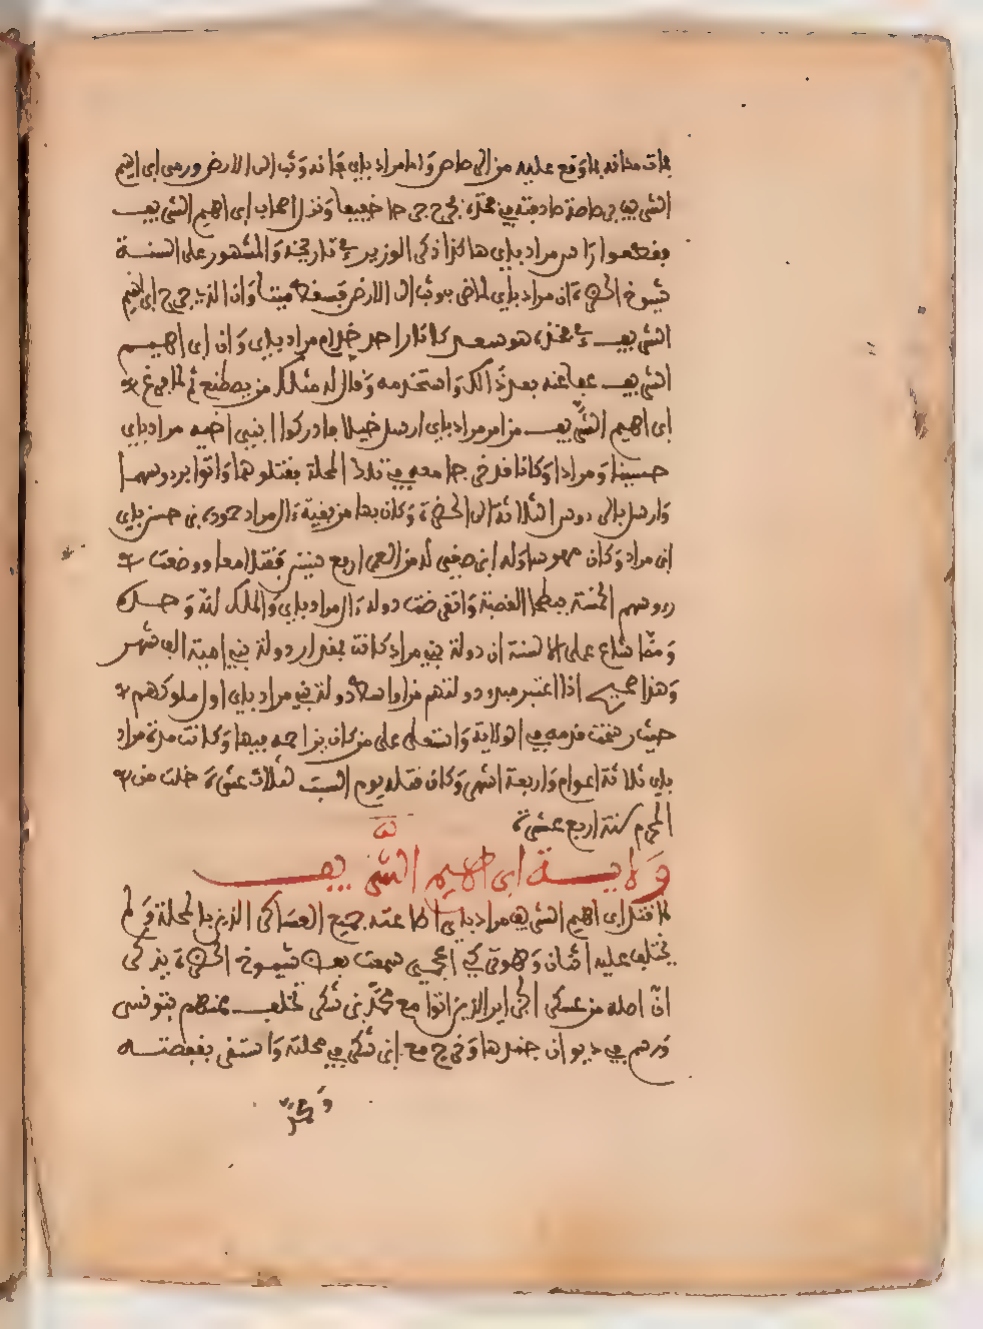 فمات مكانه لما وقع عليه من الرصاص وأما مراد باي فإنه وثب إلى الأرض ورمى إبراهيم
الشريف برصاصة صادفته في فخذه فجرح جرحا خفيفا ونزل أصحاب إبراهيم الشريف
فقطعوا رأس مراد باي هاكذا ذكر الوزير في تاريخه والمشهور على ألسنة
شيوخ الحضرة أن مراد باي لما ضرب وثب إلى الأرض فسقط ميتا وأن الذي جرح إبراهيم
الشريف في فخذه هو سعيد كان أحد خدام مراد باي وأن إبراهيم
الشريف عفا عنه بعد ذالك واستخدمه وقال له مثلك من يصطنع ثم لما فرغ
إبراهيم الشريف من أمر مراد باي أرسل خيلا فأدركوا ابني أخيه مراد باي
حسينا ومرادا وكانا قد خرجا معه في تلك المحلة فقتلوهما وأتوا برءوسهما
وأرسل برءوس الثلاثة إلى الحضرة وكان بها من بقية ءال مراد حمودة بن حسن باي
ابن مراد وكان مهوسا وله ابن صغير له من العمر أربع سنين فقتلا معا ووضعت
رءوسهم الخمسة ببطحا القصبة وانقرضت دولة ءال مراد باي والملك لله وحده
ومما شاع على الألسنة أن دولة بني مراد كانت بمقدار دولة بني أمية ألف شهر
وهذا صحيح إذا اعتبر مبدء دولتهم من أواسط دولة بني مراد باي أول ملوكهم
حيث رسخت قدمه في الولاية واستعلى على من كان يزاحمه فيها وكانت مدة مراد
باي ثلاثة أعوام وأربعة أشهر وكان قتله يوم السبت لثلاث عشرة خلت من
المحرم سنة أربع عشرة
ولاية إبراهيم الشريف
لما قتل إبراهيم الشريف مراد باي أطاعته جميع العساكر الذين بالمحلة ولم
يختلف عليه اثنان وهو تركي أعجمي سمعت بعض شيوخ الحضرة يذكر
أن أصله من عسكر الجزاير الذين أتوا مع محمد بن شكر تخلف منهم بتونس
ورسم في ديوان جندها وخرج مع ابن شكر في محلته واستقر بقفصة